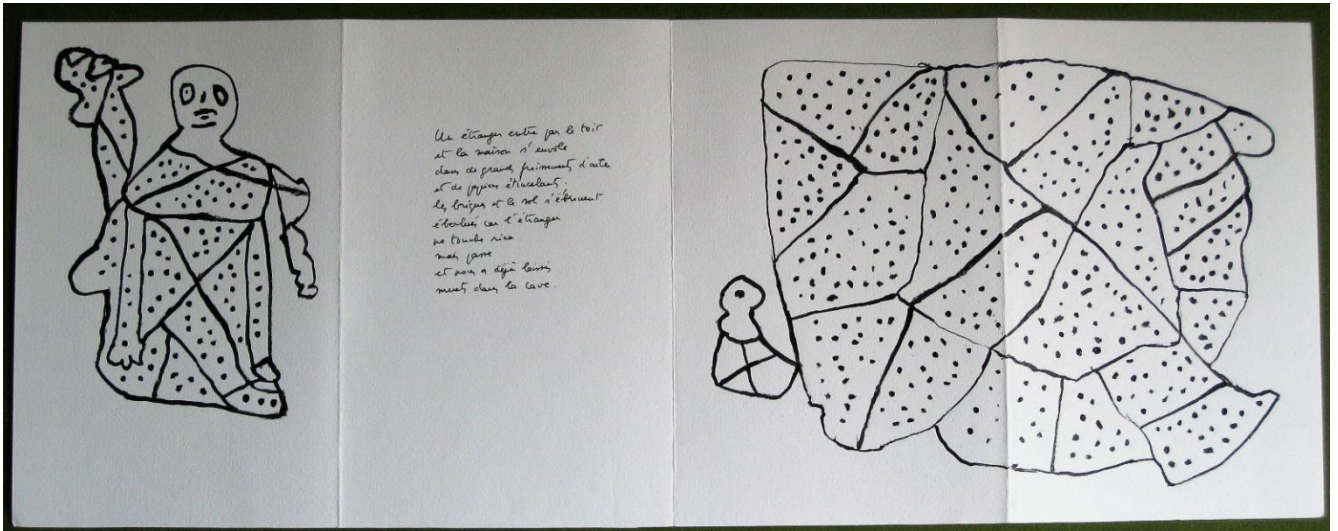 Un étranger entre par le toit
et la maison s'envole
dans de grands froissements d'ailes
et de papiers étincelants.
les briques et le sol s'étonnent
car l'étranger
ne touche rien
mais passe
et nous a déjà laissés
muets dans la cave.